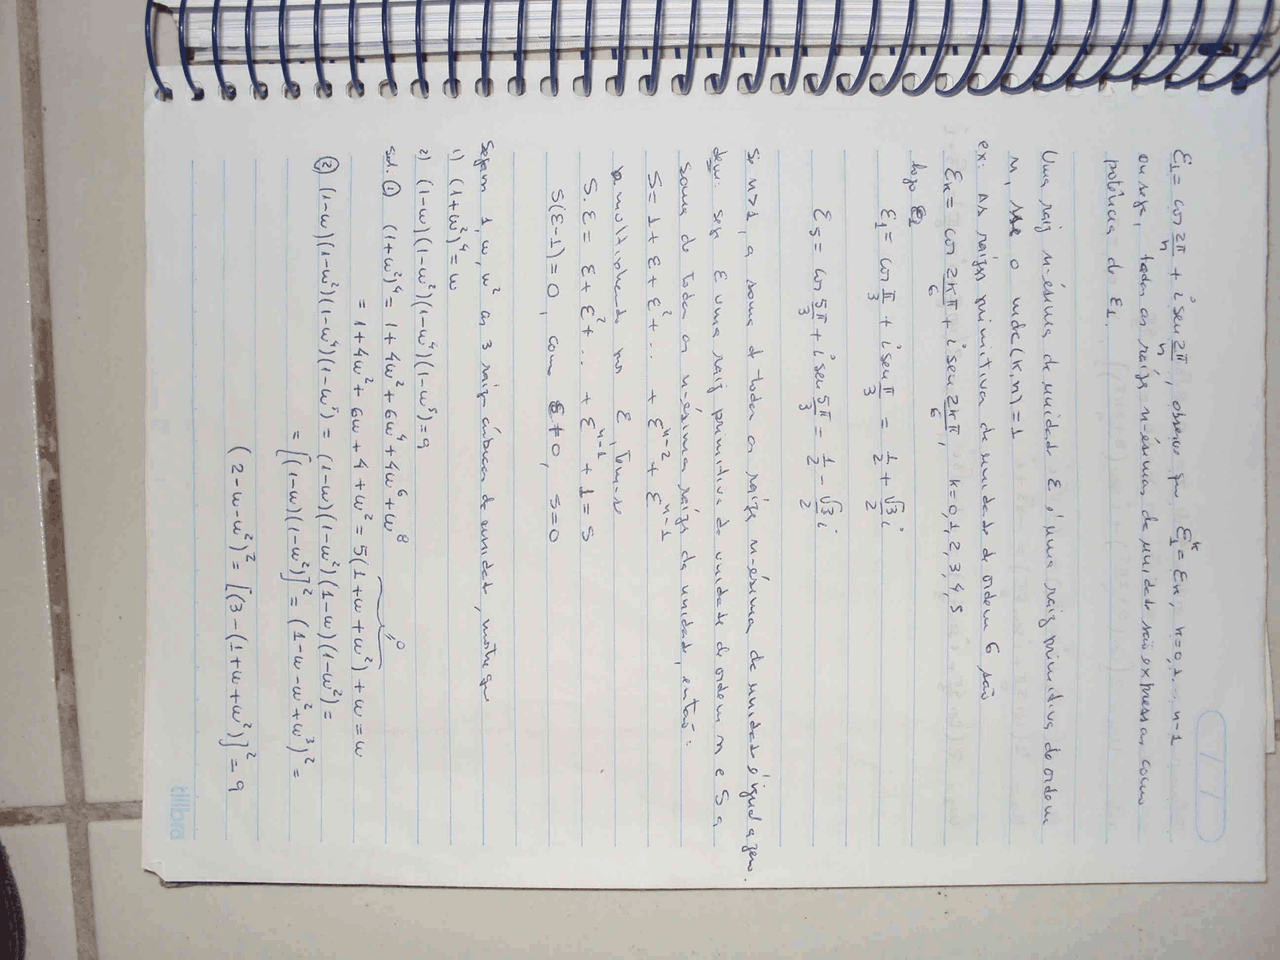 ε₁ = cos 2π/n + i sen 2π/n, observe que ε₁ᵏ = εₖ, k=0,1... n-1
ou seja, todas as raízes n-ésimas da unidade são expressas como
potência de ε₁.
Uma raiz n-ésima da unidade ε é uma raiz primitiva de ordem
n, se o mdc(k,n)=1
ex: As raízes primitivas da unidade de ordem 6 são
εₖ = cos 2kπ/6 + i sen 2kπ/6, k=0,1,2,3,4,5
logo
ε₁ = cos π/3 + i sen π/3 = 1/2 + √3/2 i
ε₅ = cos 5π/3 + i sen 5π/3 = 1/2 - √3/2 i
Se n>1, a soma de todas as raízes n-ésimas da unidade é igual a zero.
dem: seja ε uma raiz primitiva da unidade de ordem n e S a
soma de todas as n-ésimas raízes da unidade, então:
S = 1 + ε + ε² + ... + εⁿ⁻² + εⁿ⁻¹
multiplicando por ε, tem-se
S.ε = ε + ε² + ... + εⁿ⁻¹ + 1 = S
S(ε-1) = 0, como ≠ 0, S=0
Sejam 1, w, w² as 3 raízes cúbicas da unidade, mostre que
1) (1+w²)⁴ = w
2) (1-w)(1-w²)(1-w⁴)(1-w⁵) = 9
sol. ① (1+w²)⁴ = 1 + 4w² + 6w⁴ + 4w⁶ + w⁸
= 1 + 4w² + 6w + 4 + w² = 5(1+w+w²) + w = w
0
② (1-w)(1-w²)(1-w⁴)(1-w⁵) = (1-w)(1-w²)(1-w)(1-w²) =
= [(1-w)(1-w²)]² = (1-w-w²+w³)² =
(2-w-w²)² = [(3-(1+w+w²)]² = 9
tilibra